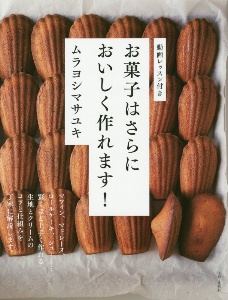 動画レッスン付き
お菓子はさらに
おいしく作れます！
ムラヨシマサユキ
マフィン、マドレーヌ
生地とクリームの
コツと仕組みを
丁寧に解説します